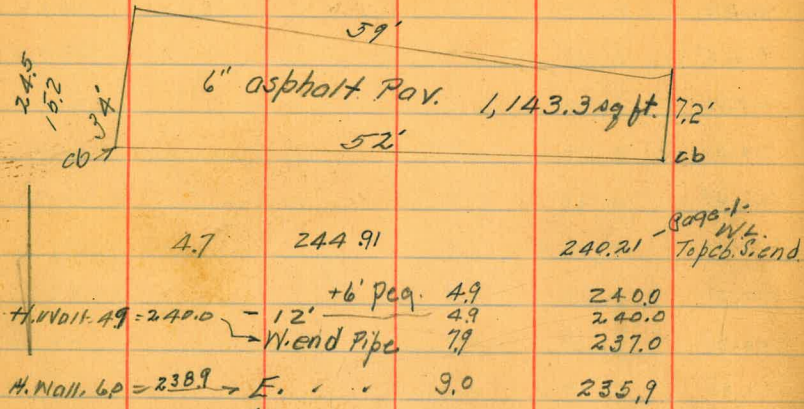 59'
24.5
15.2
34'
6" asphalt Pav. 1,143.3 sq ft. 7.2'
cb 52' cb
4.7 244.91 240.21 - Page-1-
W.L.
Top cb. S. end.
+6' peg. 4.9 240.0
H. Wall. 4.9 = 240.0 - 12' 4.9 240.0
W. end Pipe 7.9 237.0
H. Wall. 6.0 = 238.9 E. " " 9.0 235.9